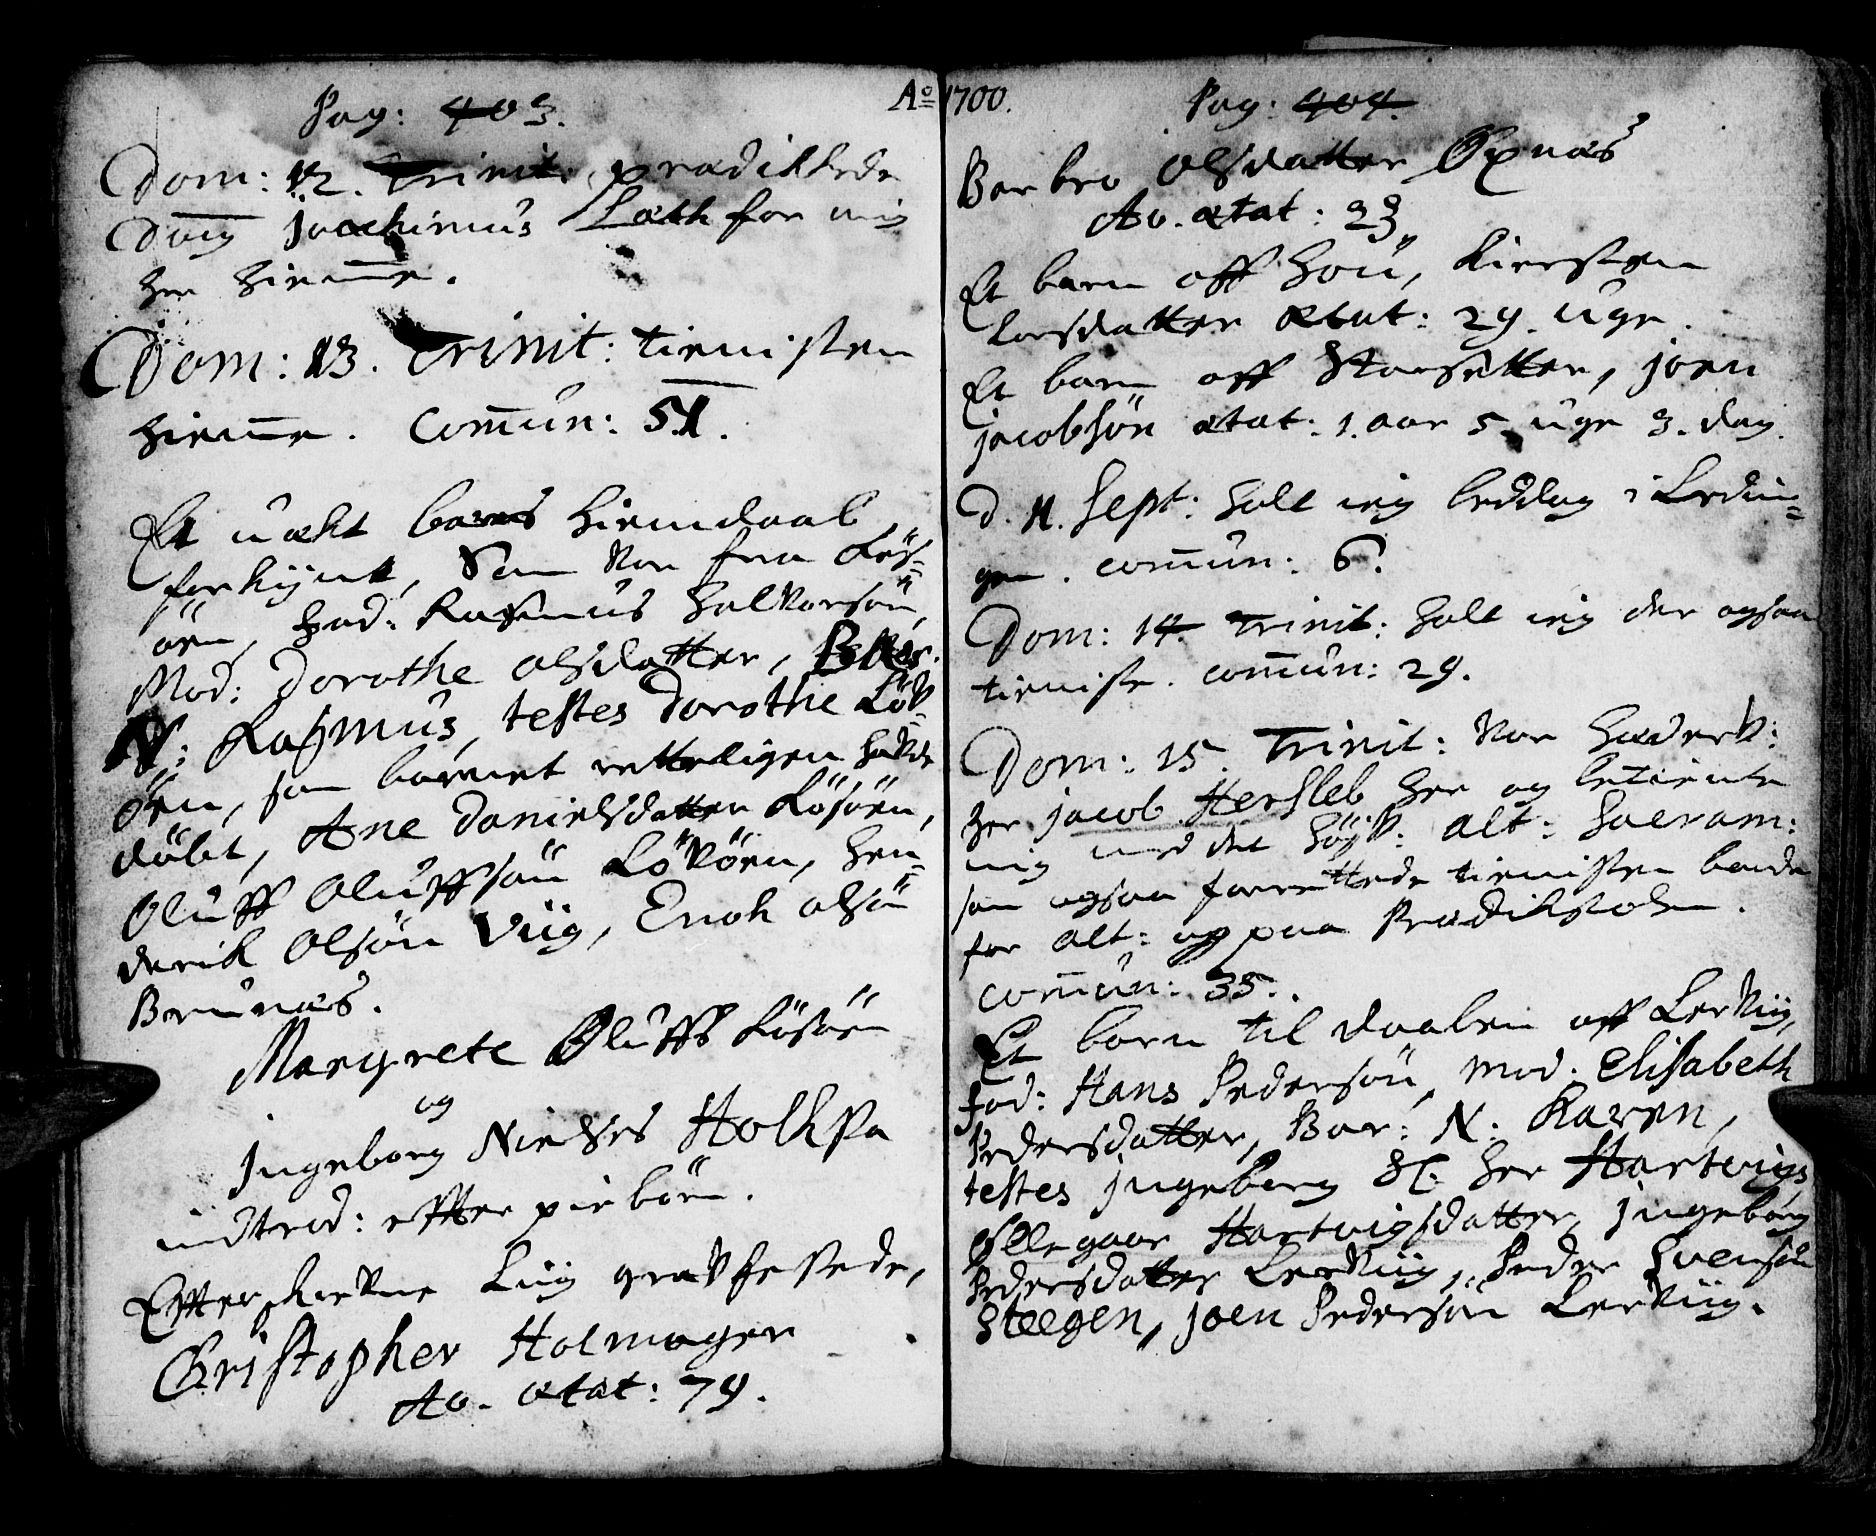 Pag: 403.
Dom: 12. Trinit: prædikkede
Dom̅ Joachimus Lath for mig
her hiem̅e.
Dom: 13. Trinit: tienisten
hiem̅e. Com̅un: 51.
Et uækt barns hiemdaab
forkÿnt, Som var fra Løs=
øen, fad: Rasmus Halvorsøn,
Mod: Dorothe Olsdatter, Bar:
N: Rasmus, testes Dorothe Løk=
øen, som barnet retteligen hafde
døbt, Ane Danielsdatter Løsøen,
Oluff Oluffsøn Løkøen, Hen=
derik Olsøn Viig, Enok Olsøn
Brunæs.
Margrete Oluffs Løsøen
og
Ingeborg Nielses Holkpa
indtred: effter piebørn.
Effterskrefne Liig graffestede,
Christopher Holmager
Ao. ætat: 79.
Ao 1700.
Pag: 404.
Barbro Olsdatter Øxnæs
Ao. ætat: 23.
Et barn aff Hou, Kiersten
Larsdatter ætat: 29. uge.
Et barn aff Storsetter, Joen
Jacobsøn ætat: 1. aar 5 uge 3. dag.
D. 11. Sept: holt ieg beddag i Ledin=
gen. com̅un: 6.
Dom: 14. Trinit: holt ieg der ogsaa
tieniste. com̅un: 29.
Dom: 15. Trinit: var Hæderv:
Her Jacob Hersleb her og betiente
mig med det Høyv: Alt: Sacram:
som ogsaa forrettede tienisten baade
for Alt: og paa Prædikstolen.
com̅un: 35.
Et barn til daaben aff Lerviig,
fad: Hans Pedersøn, Mod. Elisabeth
Pedersdatter, Bar: N: Karen,
testes Ingeborg Sl. Her Hartvigs
Ellegaar Hartvigsdatter, Ingeborg
Pedersdatter Lerviig, Peder Svensøn
Steegen, Joen Pedersøn Lerviig.